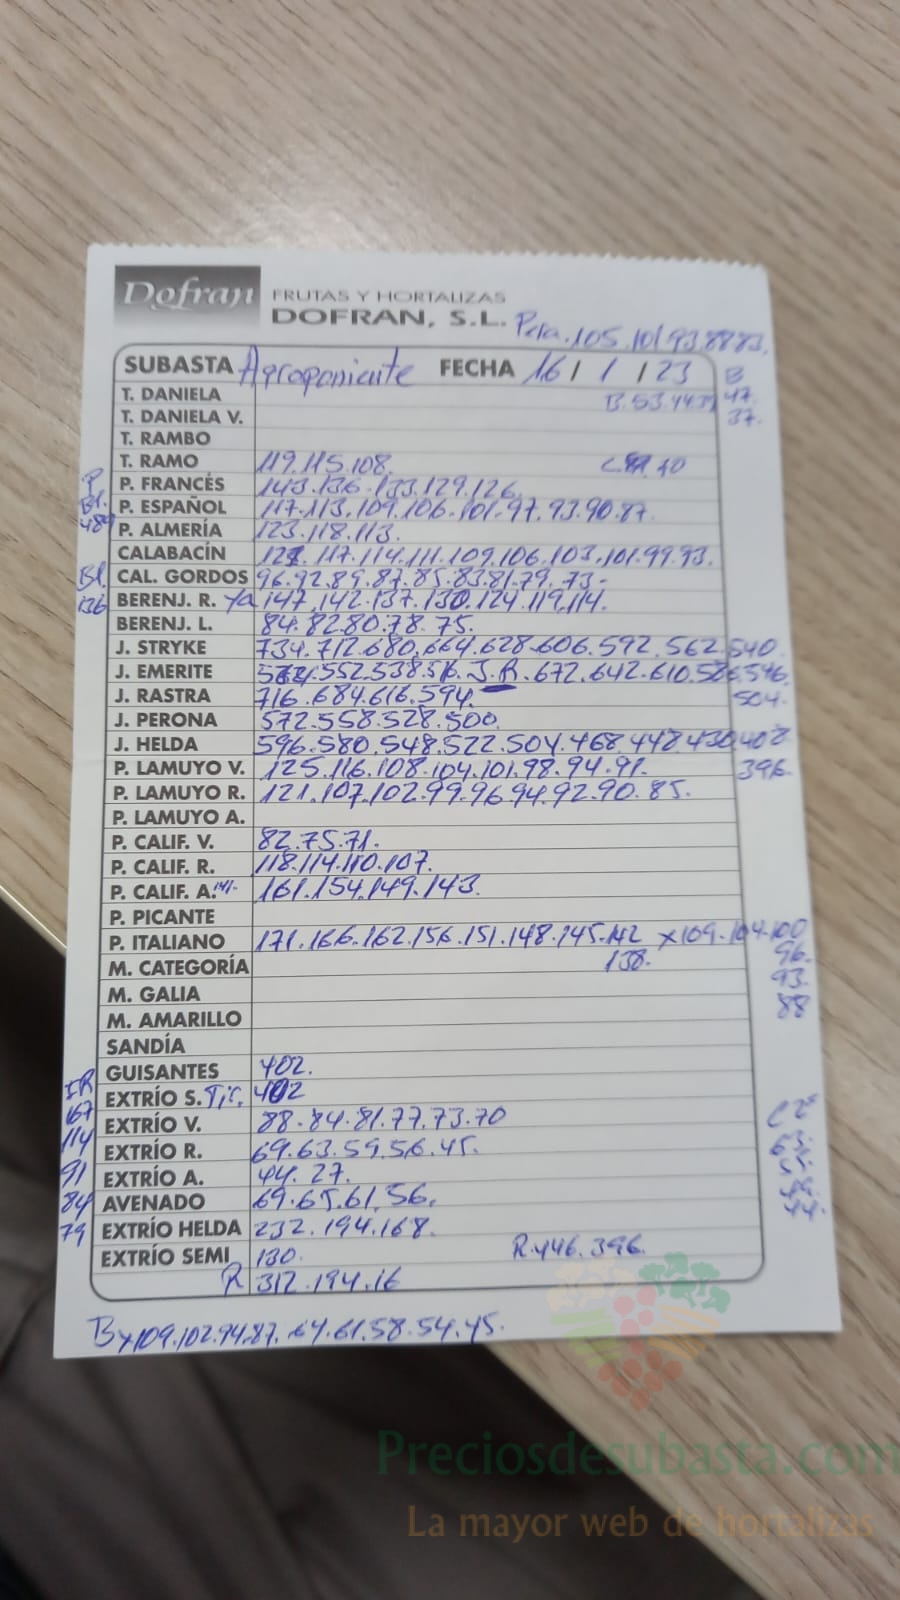 Dofran FRUTAS Y HORTALIZAS
DOFRAN, S.L. Pera. 105. 101 93 88 83.
SUBASTA Agroponiente FECHA 16 / 1 / 23 B
T. DANELA B. 53. 44. 47.
T. DANIELA V. 37.
T. RAMBO
T. RAMO 119. 115. 108. 40
P. FRANCÉS 143. 136. 133. 129. 126.
P
P. ESPAÑOL 117. 113. 109. 106. 101. 97. 93. 90. 87.
Bl.
P. ALMERÍA 123. 118. 113.
489
CALABACÍN 117. 114. 111. 109. 106. 103. 101. 99. 93.
CAL. GORDOS 96. 92. 89. 87. 85. 83. 81. 79. 73.
Bl.
BERENJ. R. ya 147. 142. 137. 130. 124. 119. 114.
136
BERENJ. L. 84. 82 80. 78. 75.
J. STRYKE 734. 712. 680. 664. 628. 606. 592. 562. 540.
J. EMERITE 552. 538. 516. J. R. 672. 642. 610. 586. 546.
J. RASTRA 716. 684. 616. 594. 504.
J. PERONA 572. 558. 528. 500.
J. HELDA 596. 580. 548. 522. 504. 468. 448. 430. 408
P. LAMUYO V. 125. 116. 108. 104. 101. 98. 94. 91. 396.
P. LAMUYO R. 121. 107. 102. 99. 96. 94. 92. 90. 85.
P. LAMUYO A.
P. CALIF. V. 82. 75. 71.
P. CALIF. R. 118. 114. 110. 107.
P. CALIF. A. 161. 154. 149. 143.
P. PICANTE
P. ITALIANO 171. 166. 162. 156. 151. 148. 145. 142 x109. 104. 100
M. CATEGORÍA 138. 96.
M. GALIA 93.
M. AMARILLO 88
SANDÍA
GUISANTES 402.
EXTRÍO S. 402
EXTRÍO V. 88. 84. 81. 77. 73. 70
167
EXTRÍO R. 69. 63. 59. 56. 45.
114
EXTRÍO A. 44. 27.
91
AVENADO 69. 65. 61. 56.
84
EXTRÍO HELDA 232. 194. 168.
79
EXTRÍO SEMI 130. R. 446. 396.
R 312. 194. 16
B x109. 102. 94. 87. 64. 61. 58. 54. 45.
Preciosdesubasta.com
La mayor web de hortalizas